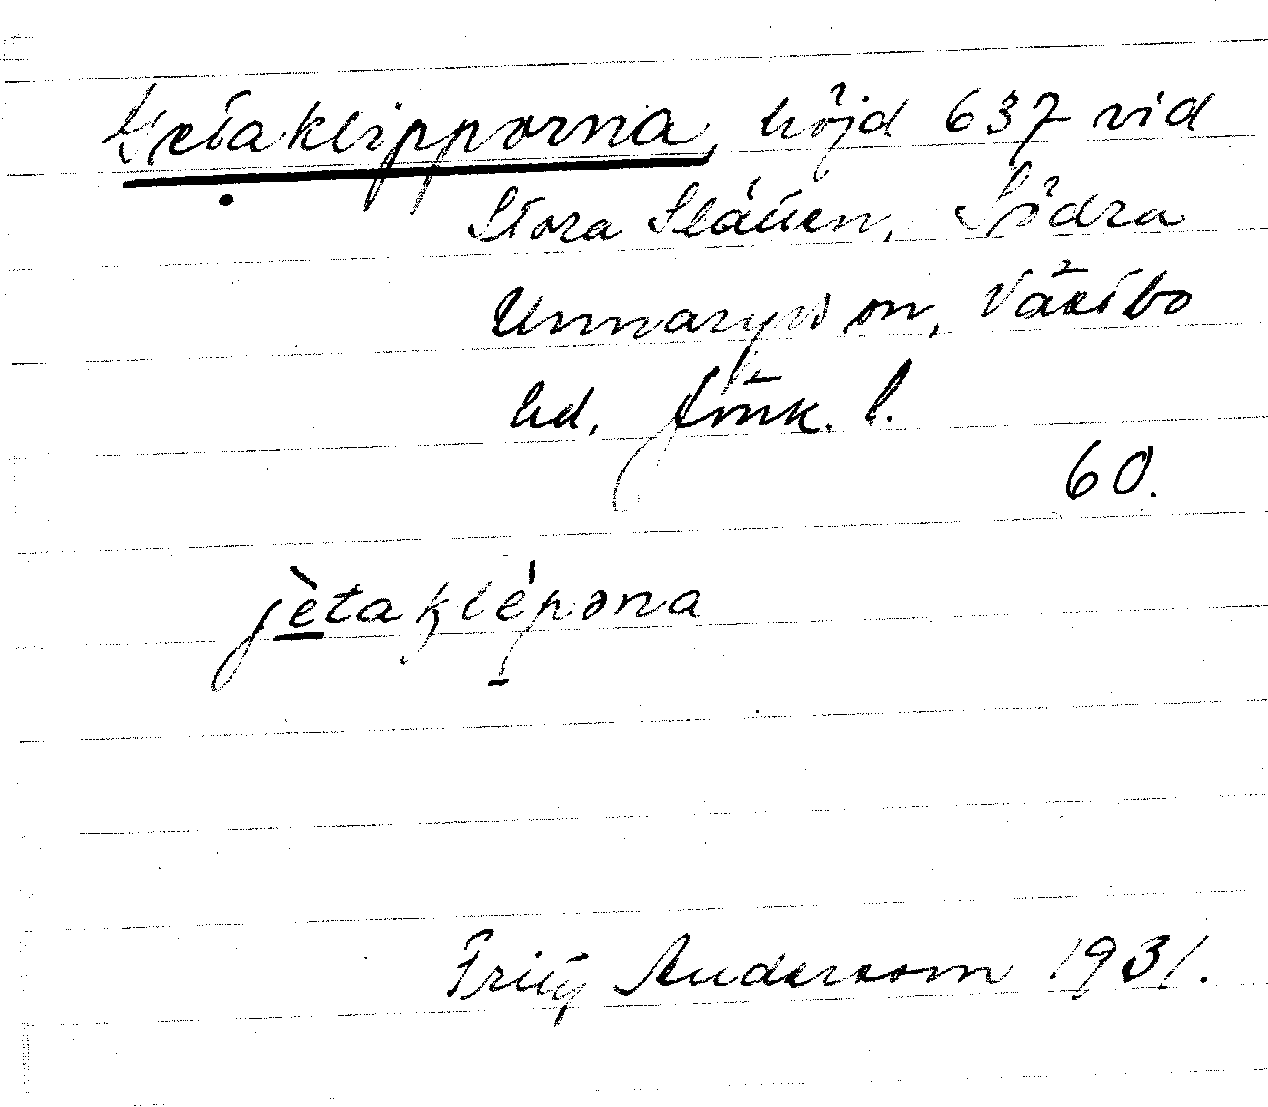 Getaklipporna, höjd 637 vid
Stora Slätten, Södra
Unnaryds sn, Västbo
hd. Jönk. l.
60.
jètaklép̱əna
Fritz Andersson 1931.